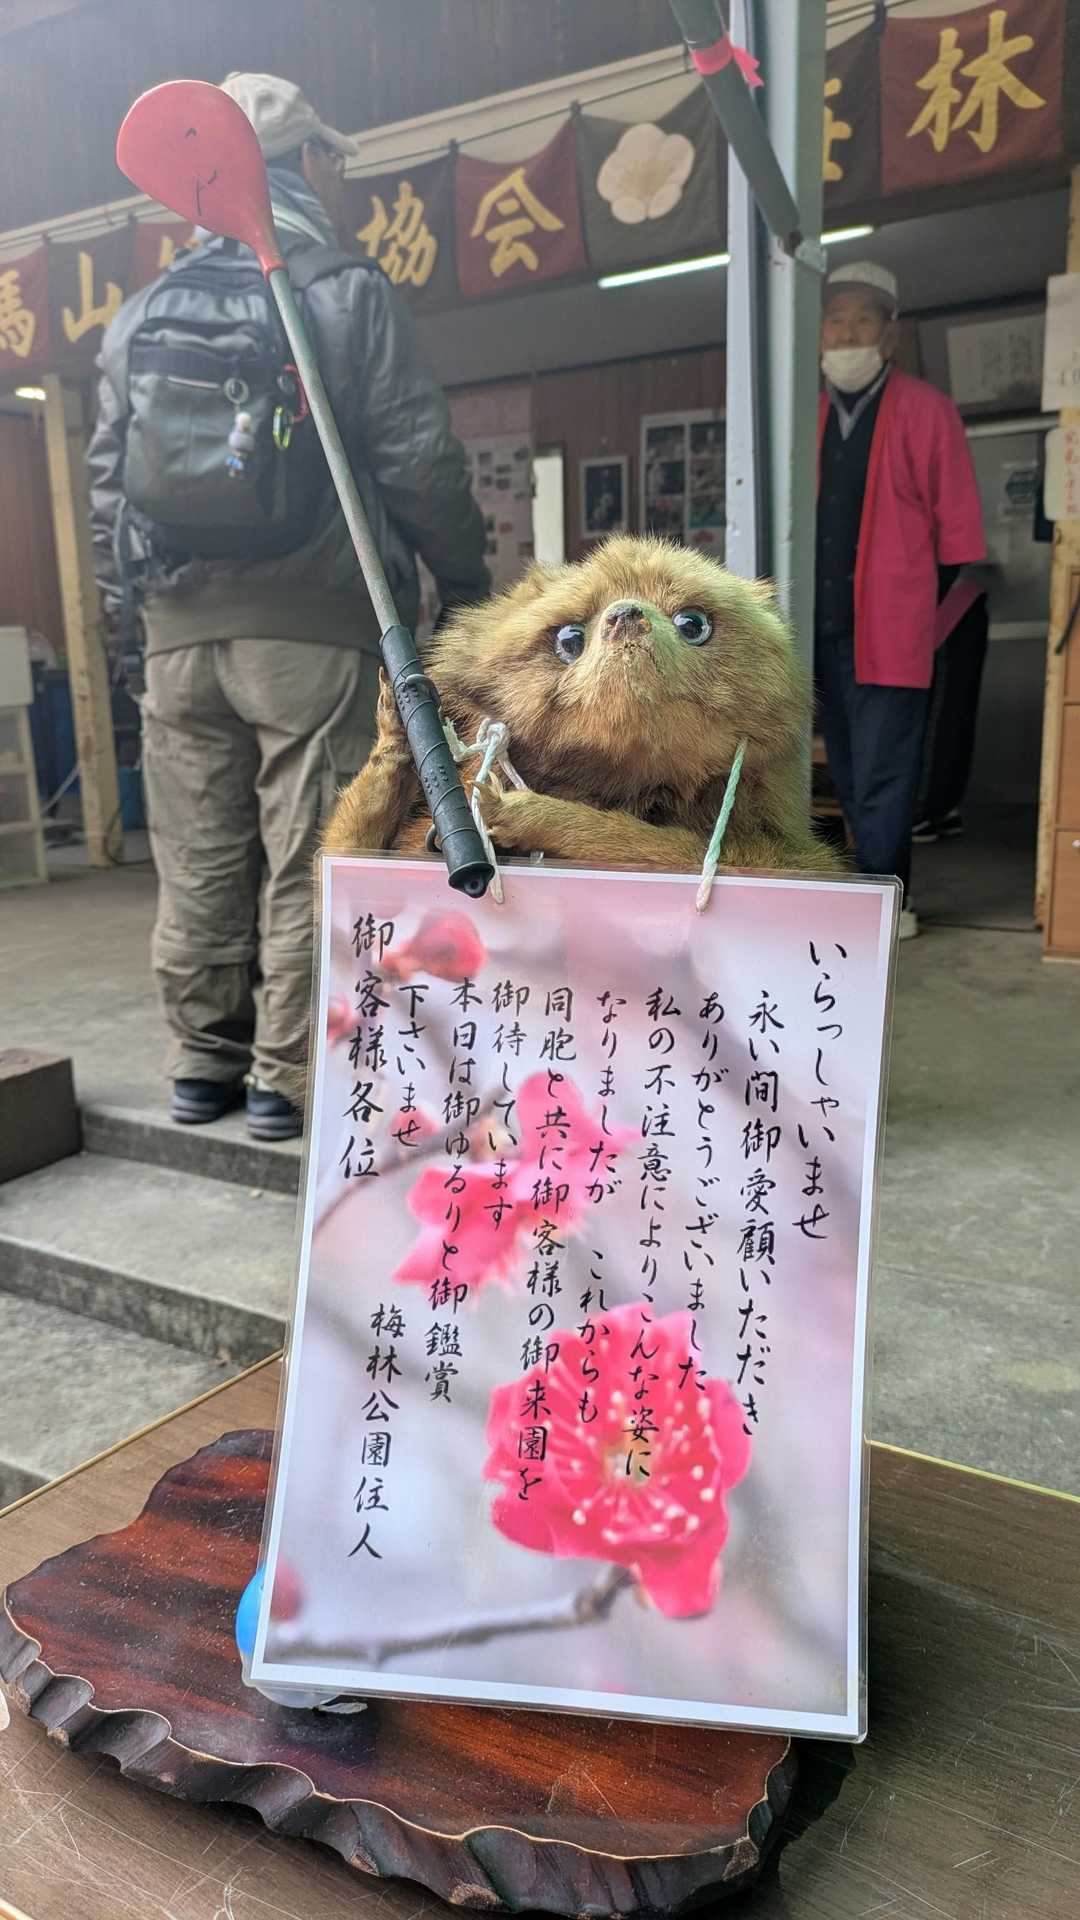 馬山
協会
林
いらっしゃいませ
永い間御愛顧いただき
ありがとうございました
私の不注意によりこんな姿に
なりましたが これからも
同胞と共に御客様の御来園を
御待しています
本日は御ゆるりと御鑑賞
下さいませ
梅林公園住人
御客様各位